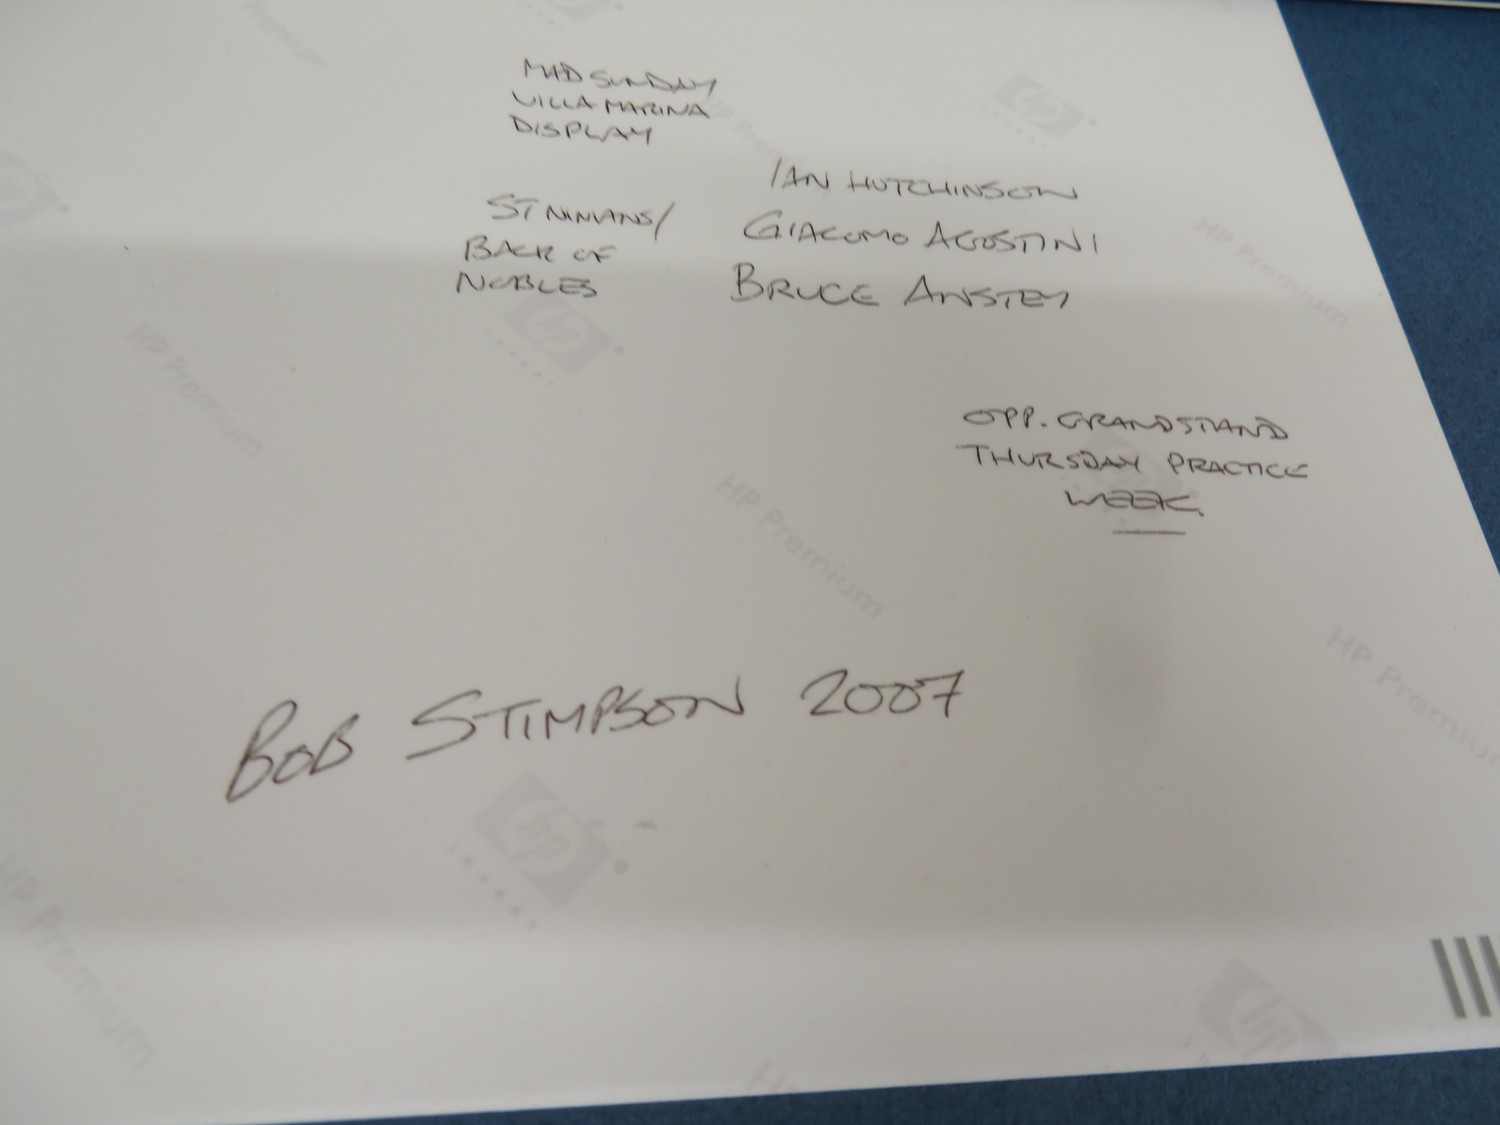 MAD SUNDAY
VILLA MARINA
DISPLAY
IAN HUTCHINSON
ST NINIANS/
GIACOMO AGOSTINI
BACK OF
NOBLES
BRUCE ANSTEY
OPP. GRANDSTAND
THURSDAY PRACTICE
WEEK.
BOB STIMPSON 2007
hp
Premium
hp
HP Premium
hp
HP Premium
HP Premium
HP Premium
hp
HP Premium
hp
HP Premium
HP